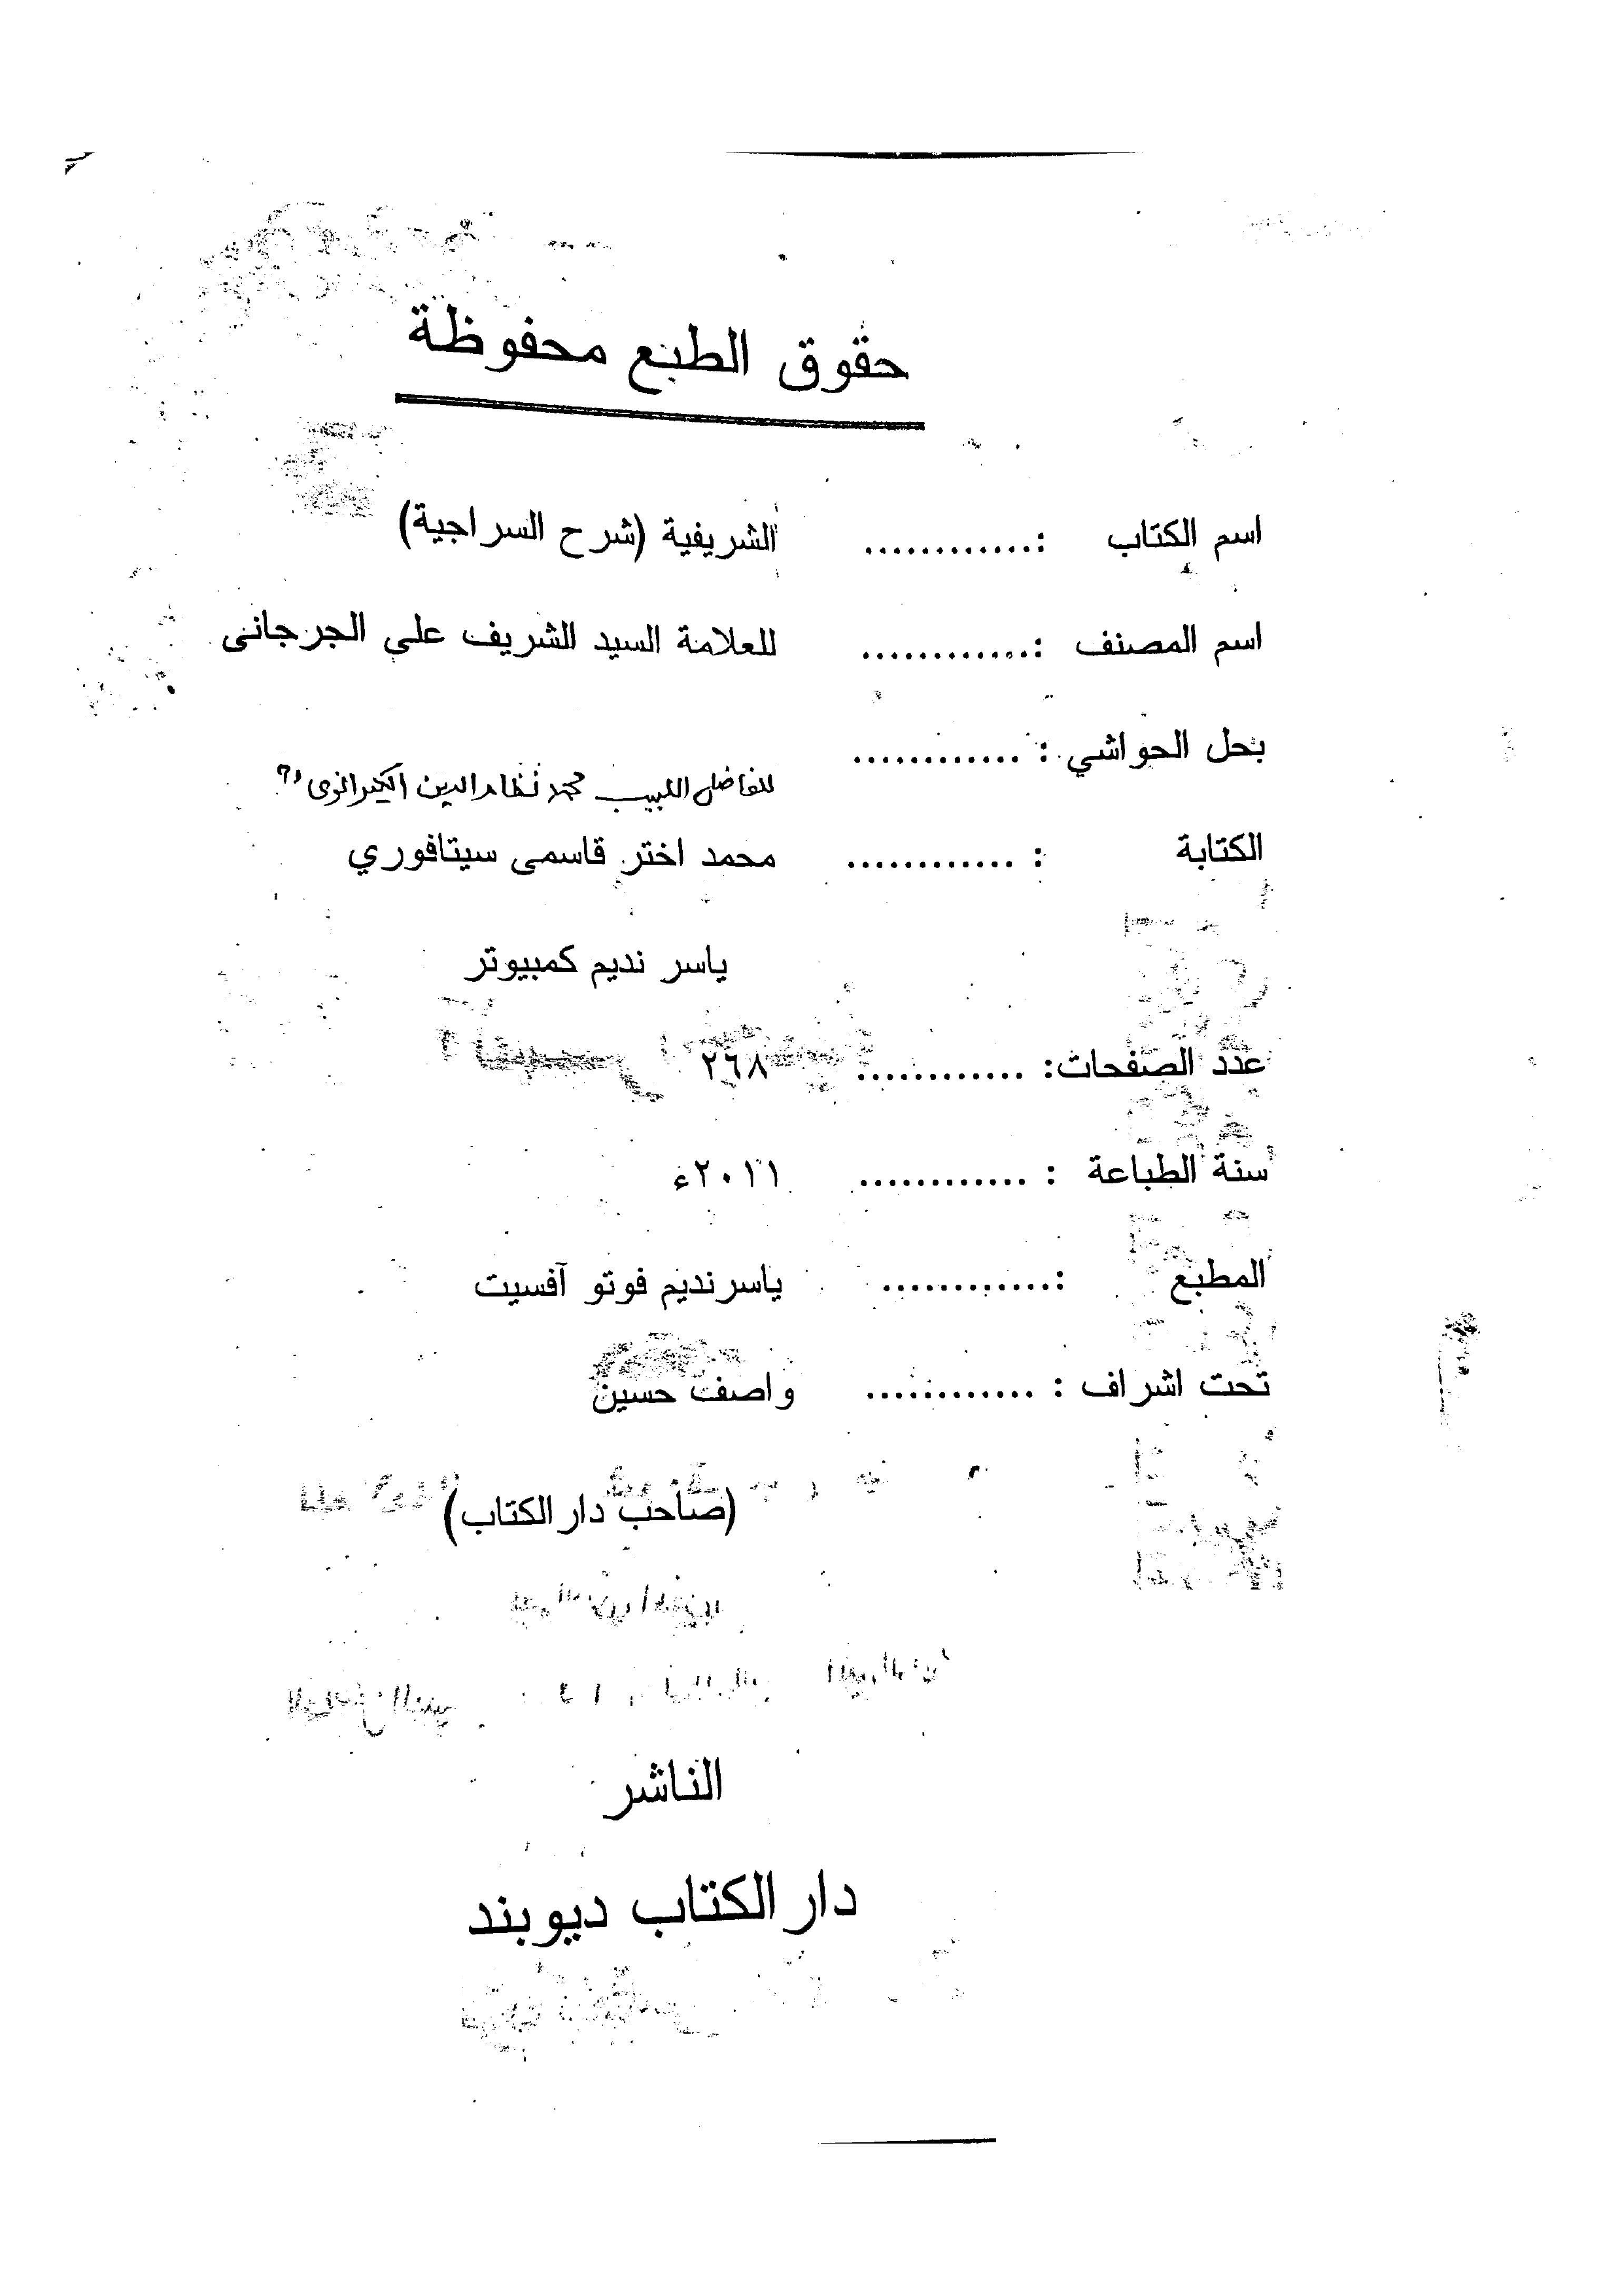 حقوق الطبع محفوظة
اسم الكتاب : ............ الشريفية (شرح السراجية)
اسم المصنف : ............ للعلامة السيد الشريف علي الجرجانى
بحل الحواشي : ............ للفاضل اللبيب محمد نظام الدين الكيرانوى
الكتابة : ............ محمد اختر قاسمى سيتافوري
ياسر نديم كمبيوتر
عدد الصفحات: ............ ٢٦٨
سنة الطباعة : ............ ٢٠١١ء
المطبع : ............ ياسرنديم فوتو آفسيت
تحت اشراف : ............ واصف حسين
(صاحب دار الكتاب)
الناشر
دار الكتاب ديوبند